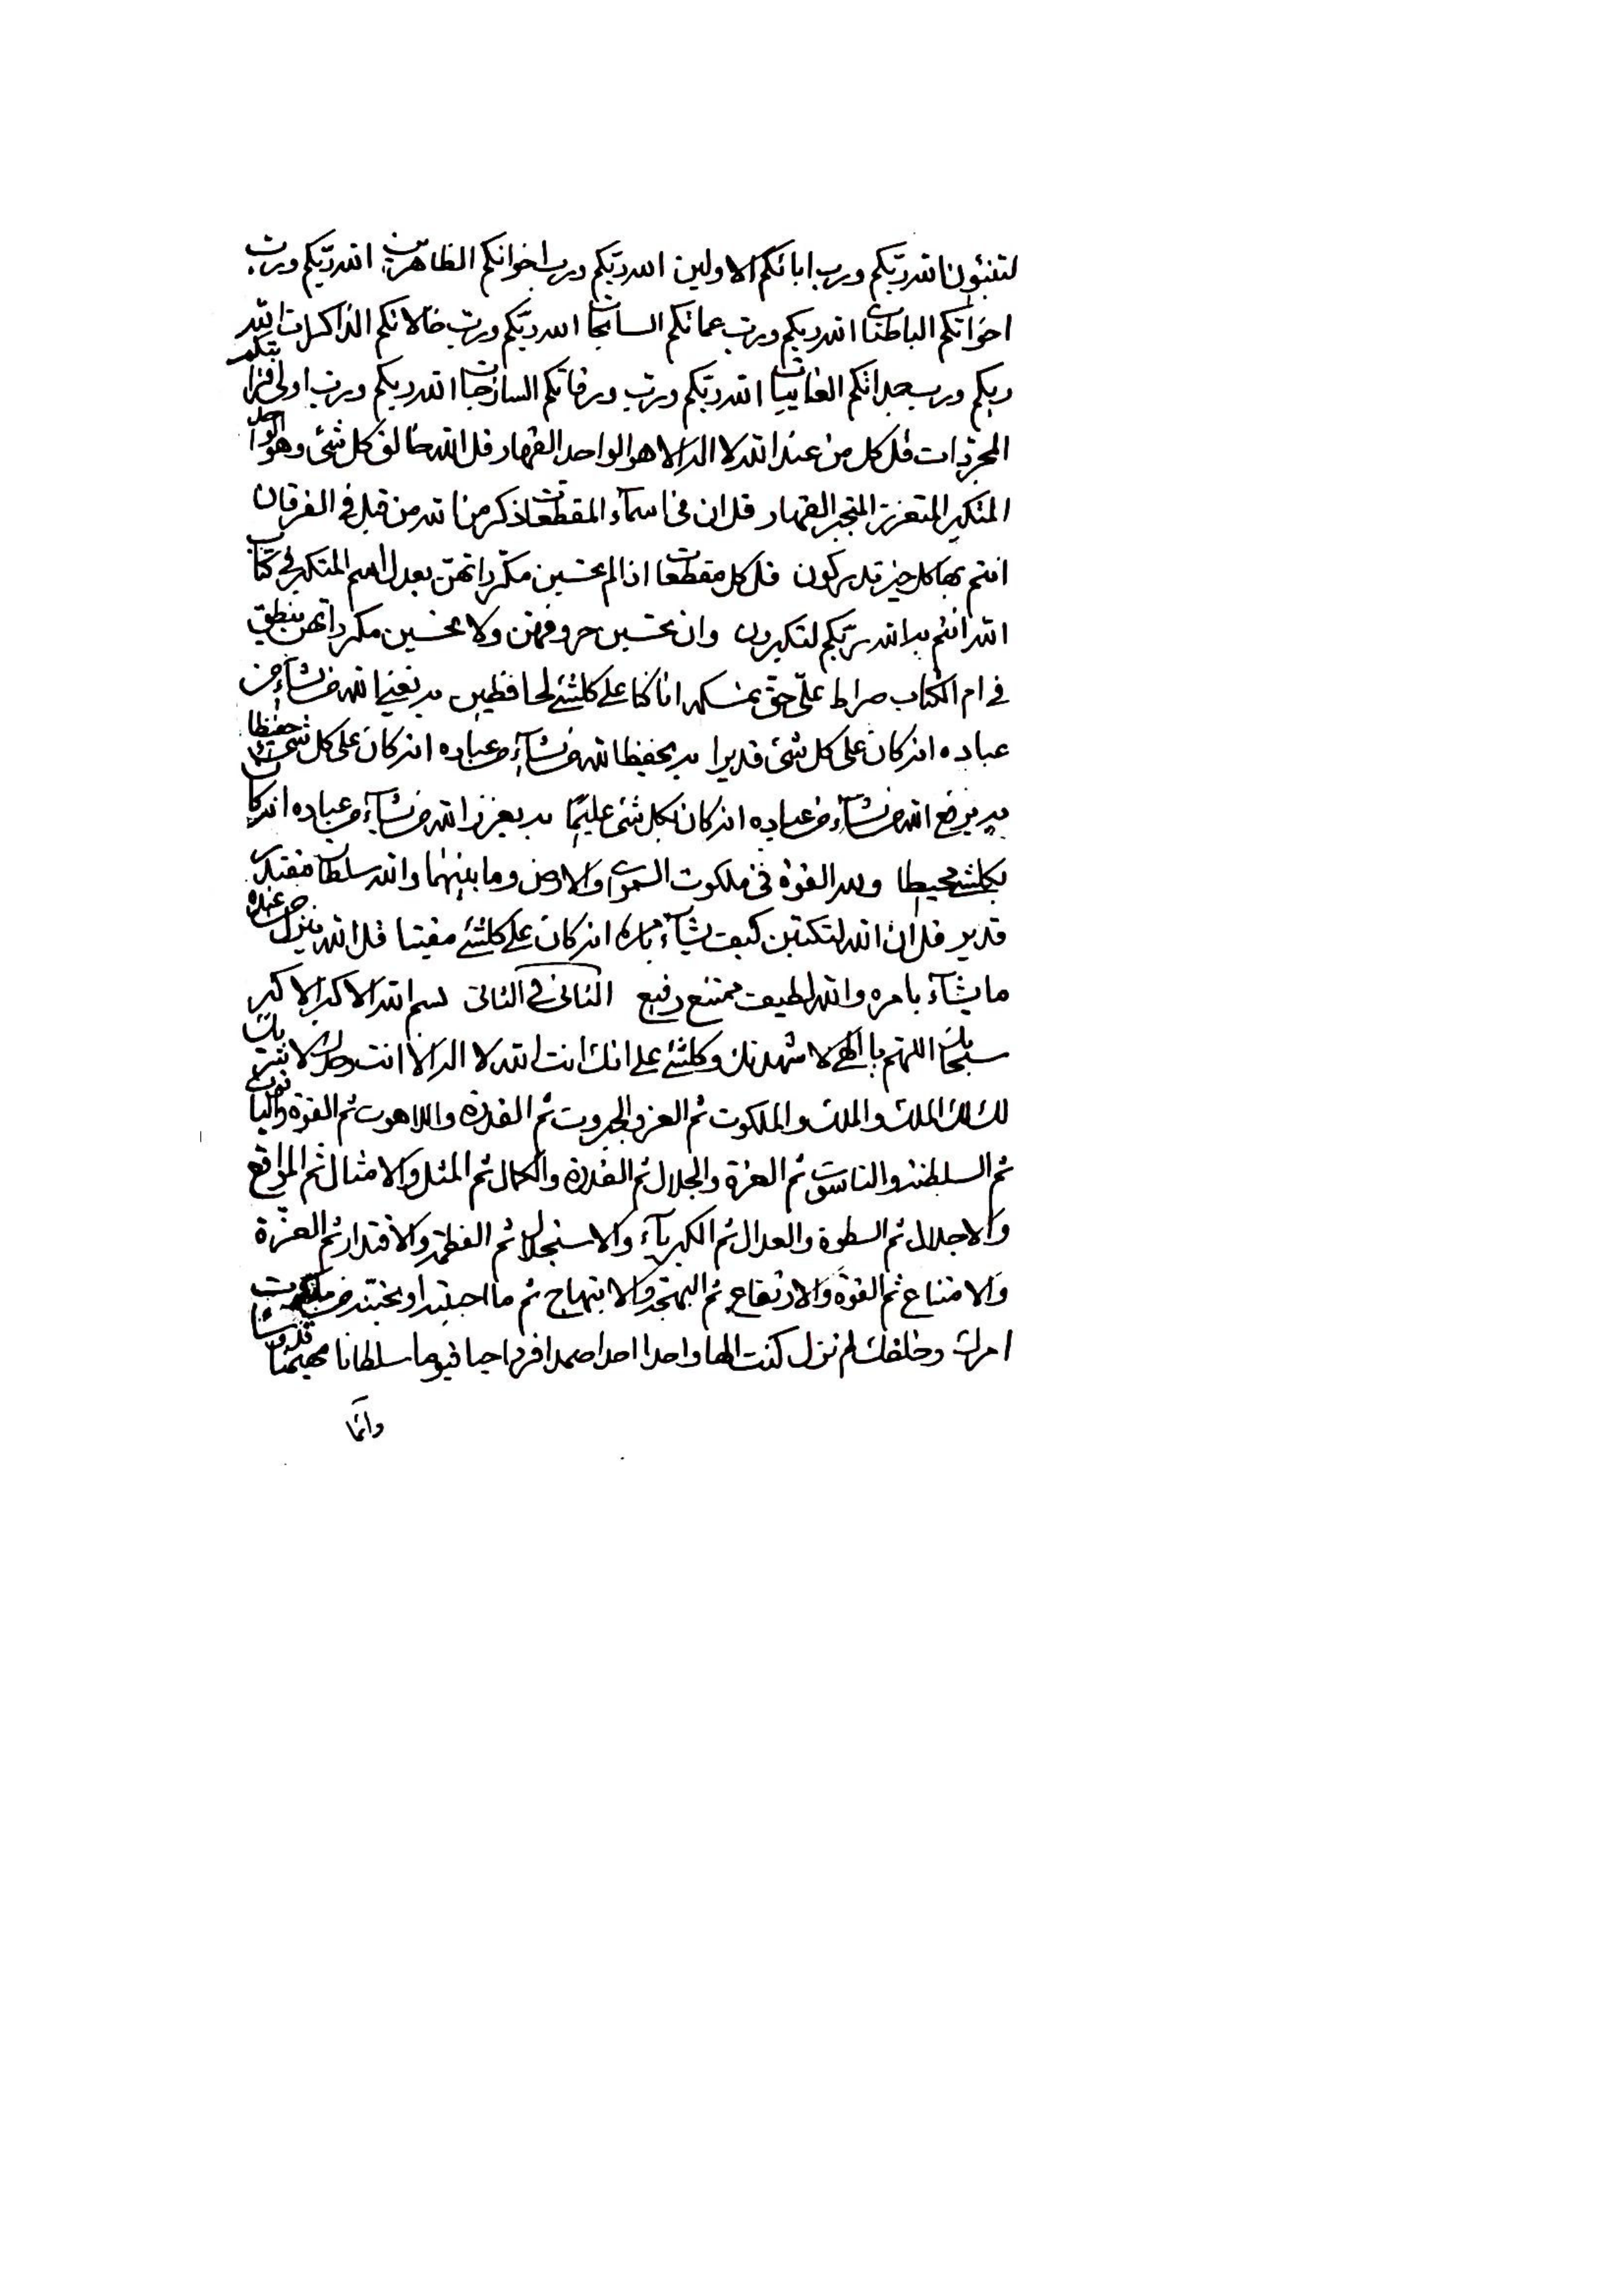 لتنبئون الله ربكم ورب ابائكم الاولين الله ربكم ورب اخوانكم الظاهرين الله ربكم ورب
اخواتكم الباطنات الله ربكم ورب عماتكم السابحات الله ربكم ورب خالاتكم الذاكرات الله
ربكم ورب جداتكم الغايبات الله ربكم ورب ورقاتكم السازجات الله ربكم ورب اولى قرابتكم
المجردات قل كل من عند الله لا اله الا هو الواحد القهار قل الله خالق كل شئ وهو الواحد
المتكبر المتعزز المتجبر القهار قل ان فى اسمآء المقطعات ذكر من الله من قبل فى الفرقان
انتم بها كل خير تدركون قل كل مقطعات اذا لم تحسبن مكرراتهن بعدل اسم المتكبر فى كتاب
الله انتم بالله ربكم لتكبرون وان تحسبن حروفهن ولا تحسبن مكرراتهن ينطق
فى ام الكتاب صراط علىّ حق نمسكه انا كنا على كلشئ لحافظين به يغنى الله من يشآء من
عباده انه كان على كل شئ قديرا به يحفظ الله من يشآء من عباده انه كان على كل شئ حفيظا
به يرفع الله من يشآء من عباده انه كان بكل شئ عليما به يعزز الله من يشآء من عباده انه كان
بكلشئ محيطا ولله القوة فى ملكوت السموات والارض وما بينهما والله سلطان مقتدر
قدير قل ان الله لتكتبن كيف يشآء بامره انه كان على كلشئ مقيتا قل الله ينزل من عنده
ما يشآء بامره والله لطيف ممتنع رفيع الثانى فى الثانى بسم الله الاكبر الاكبر
سبحانك اللهم يا الهى لاشهدنك وكلشئ على انك انت الله لا اله الا انت وحدك لا شريك
لك لك الملك والملك والملكوت ثم العز والجبروت ثم القدرة واللاهوت ثم القوة والياقوت
ثم السلطنة والناسوت ثم العزة والجلال ثم القدرة والكمال ثم المثل والامثال ثم المواقع
والاجلال ثم السطوة والعدال ثم الكبريآء والاستجلال ثم العظمة والاقتدار ثم العزة
والامتناع ثم القوة والارتفاع ثم البهجة والابتهاج ثم ما احببته او تحبنه من ملكوت
امرك وخلقك لم تزل كنت الها واحدا احدا صمدا فردا حيا قيوما سلطانا مهيمنا قدوسا
دائما